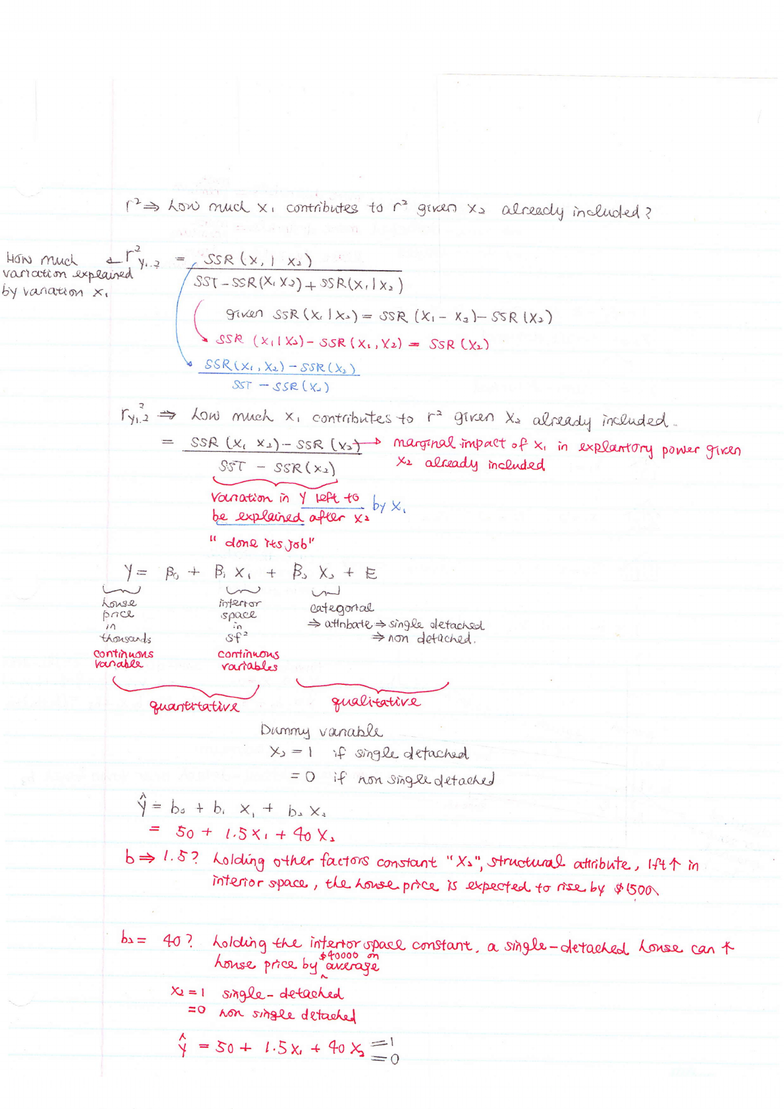 r² ⇒ how much x₁ contributes to r² given x₂ already included?
How much variation explained by variation x₁
← r²y₁.₂ = SSR(x₁ | x₂) / SST - SSR(x₁ x₂) + SSR(x₁ | x₂)
given SSR(x₁ | x₂) = SSR(x₁ - x₂) - SSR(x₂)
SSR (x₁ | x₂) - SSR(x₁, x₂) = SSR(x₂)
SSR(x₁, x₂) - SSR(x₂) / SST - SSR(x₂)
r²y₁.₂ ⇒ how much x₁ contributes to r² given x₂ already included.
= SSR(x₁ x₂) - SSR(x₂) / SST - SSR(x₂)
→ marginal impact of x₁ in explantory power given
x₂ already included
variation in y left to
be explained after x₂
by x₁
"done its job"
Y = β₀ + β₁ X₁ + β₂ X₂ + E
house
price
in
thousands
continuous
variable
interior
space
in
sf²
continuous
variables
categorial
⇒ attribute ⇒ single detached
⇒ non detached.
quantitative
qualitative
Dummy variable
X₂ = 1 if single detached
= 0 if non single detached
Ŷ = b₀ + b₁ x₁ + b₂ x₂
= 50 + 1.5x₁ + 40x₂
b ⇒ 1.5? holding other factors constant "X₂", structural attribute, 1ft↑ in
interior space, the house price is expected to rise by $1500
b₂ = 40? holding the interior space constant, a single-detached house can ↑
house price by $40000 on average
x₂ = 1 single-detached
= 0 non single detached
Ŷ = 50 + 1.5x₁ + 40x₂ =1
=0